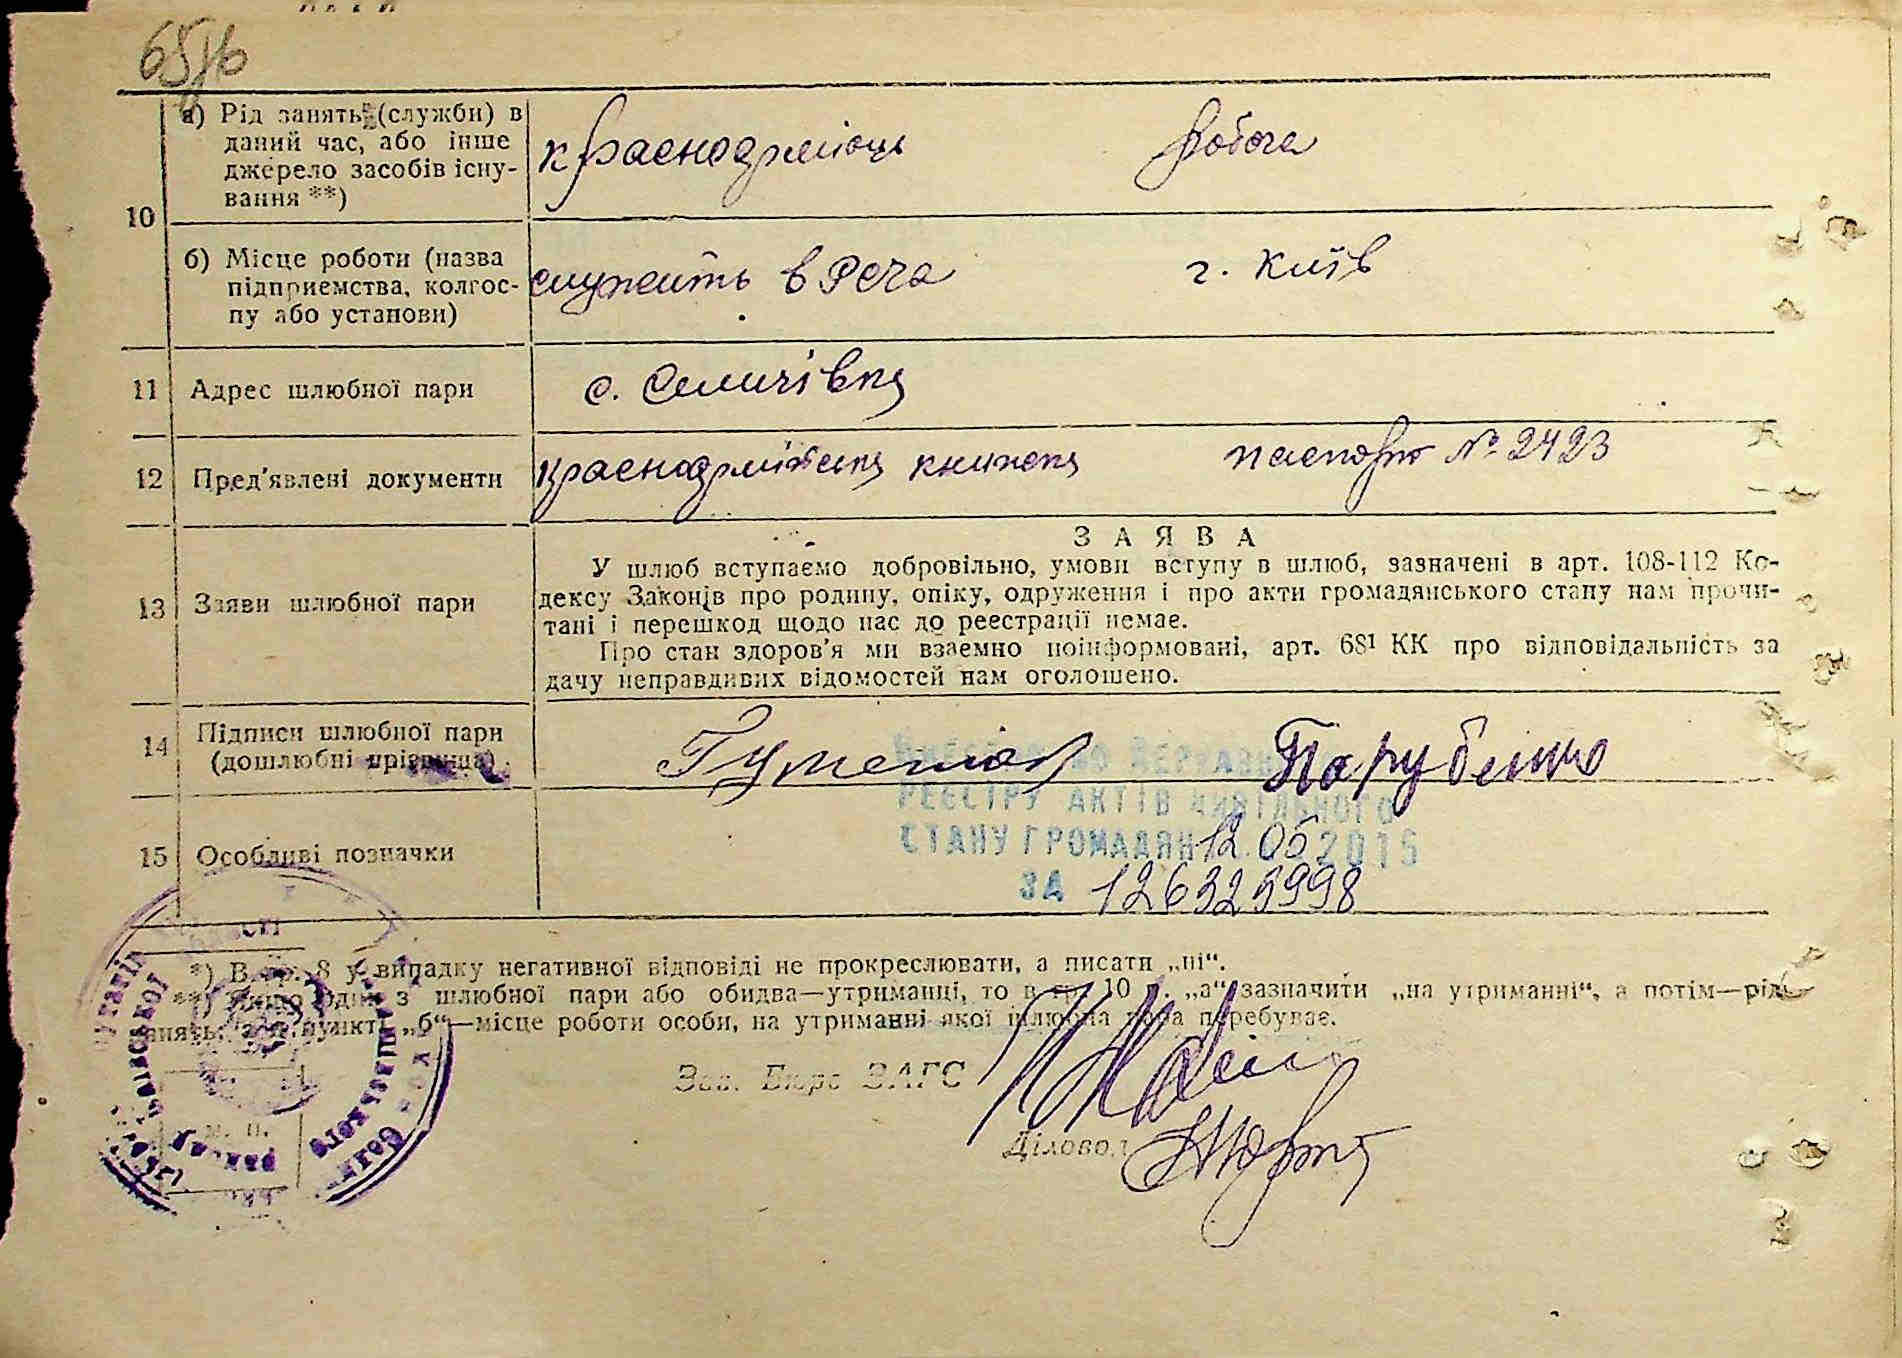 10
а) Рід занять (служби) в
даний час, або інше
джерело засобів існу-
вання **)
красноармієць
робоча
б) Місце роботи (назва
підприємства, колгос-
пу або установи)
служить в
г. Київ
11
Адрес шлюбної пари
с. Селичівка
12
Пред'явлені документи
красноармійська книжка
паспорт № 2423
13
Заяви шлюбної пари
ЗАЯВА
У шлюб вступаємо добровільно, умови вступу в шлюб, зазначені в арт. 108-112 Ко-
дексу Законів про родину, опіку, одруження і про акти громадянського стану нам прочи-
тані і перешкод щодо нас до реєстрації немає.
Про стан здоров'я ми взаємно поінформовані, арт. 68¹ КК про відповідальність за
дачу неправдивих відомостей нам оголошено.
14
Підписи шлюбної пари
(дошлюбні прізвища)
РЕЄСТРУ АКТІВ ЦИВІЛЬНОГО
СТАНУ ГРОМАДЯН 12 05 2016
ЗА 126325998
15
Особливі позначки
*) В гр. 8 у випадку негативної відповіді не прокреслювати, а писати „ні“.
**) Якщо один з шлюбної пари або обидва—утриманці, то в гр. 10 п. „а“ зазначити „на утриманні“, а потім—рід
занять, а в пункті „б“—місце роботи особи, на утриманні якої шлюбна пара перебуває.
Зав. Бюро ЗАГС
Діловод
М. П.